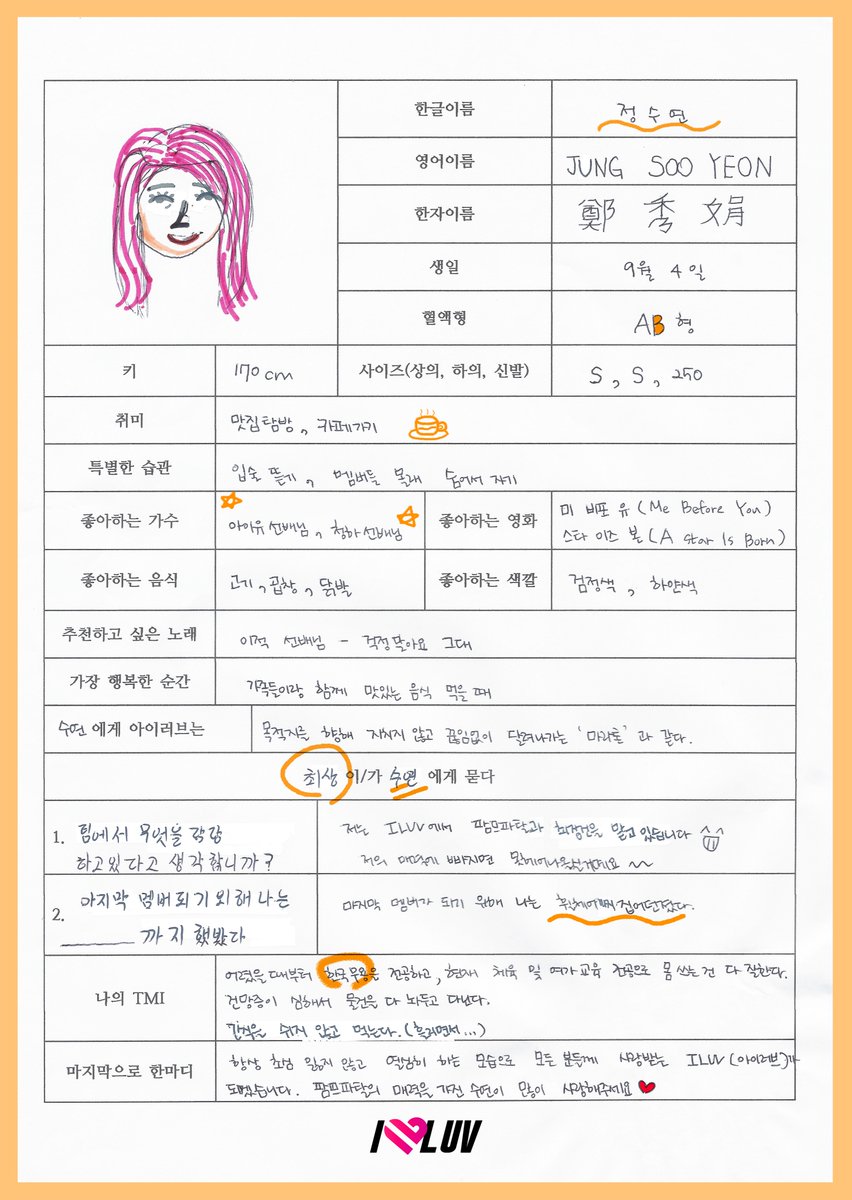 한글이름 정수연
영어이름 JUNG SOO YEON
한자이름 鄭秀娟
생일 9월 4일
혈액형 AB형
키 170cm 사이즈(상의, 하의, 신발) S, S, 250
취미 맛집탐방, 카페가기
특별한 습관 입술 뜯기, 멤버들 몰래 숨어서 자기
좋아하는 가수 아이유선배님, 청하선배님
좋아하는 영화 미 비포 유 (Me Before You)
스타 이즈 본 (A Star Is Born)
좋아하는 음식 고기, 곱창, 닭발 좋아하는 색깔 검정색, 하얀색
추천하고 싶은 노래 이적 선배님 - 걱정말아요 그대
가장 행복한 순간 가족들이랑 함께 맛있는 음식 먹을때
수연 에게 아이러브는 목적지를 향해 지치지 않고 끊임없이 달려나가는 '마라톤' 과 같다.
최상 이/가 수연 에게 묻다
1. 팀에서 무엇을 담당
하고있다고 생각합니까?
저는 ILUV에서 팜프파탈과 을 맡고 있습니다
저의 매력에 빠지면 ~~
2. 마지막 멤버되기 위해 나는
______ 까지 해봤다
마지막 멤버가 되기 위해 나는
나의 TMI
어렸을때부터 한국무용을 전공하고, 현재 체육 및 여가교육 전공으로 몸 쓰는건 다 잘한다.
건망증이 심해서 물건을 다 놔두고 다닌다.
간식을 쉬지 않고 먹는다. (흘리면서...)
마지막으로 한마디
항상 초심 잃지 않고 열심히 하는 모습으로 모든 분들께 사랑받는 ILUV(아이러브)가
되겠습니다. 팜프파탈의 매력을 가진 수연이 많이 사랑해주세요
I LUV